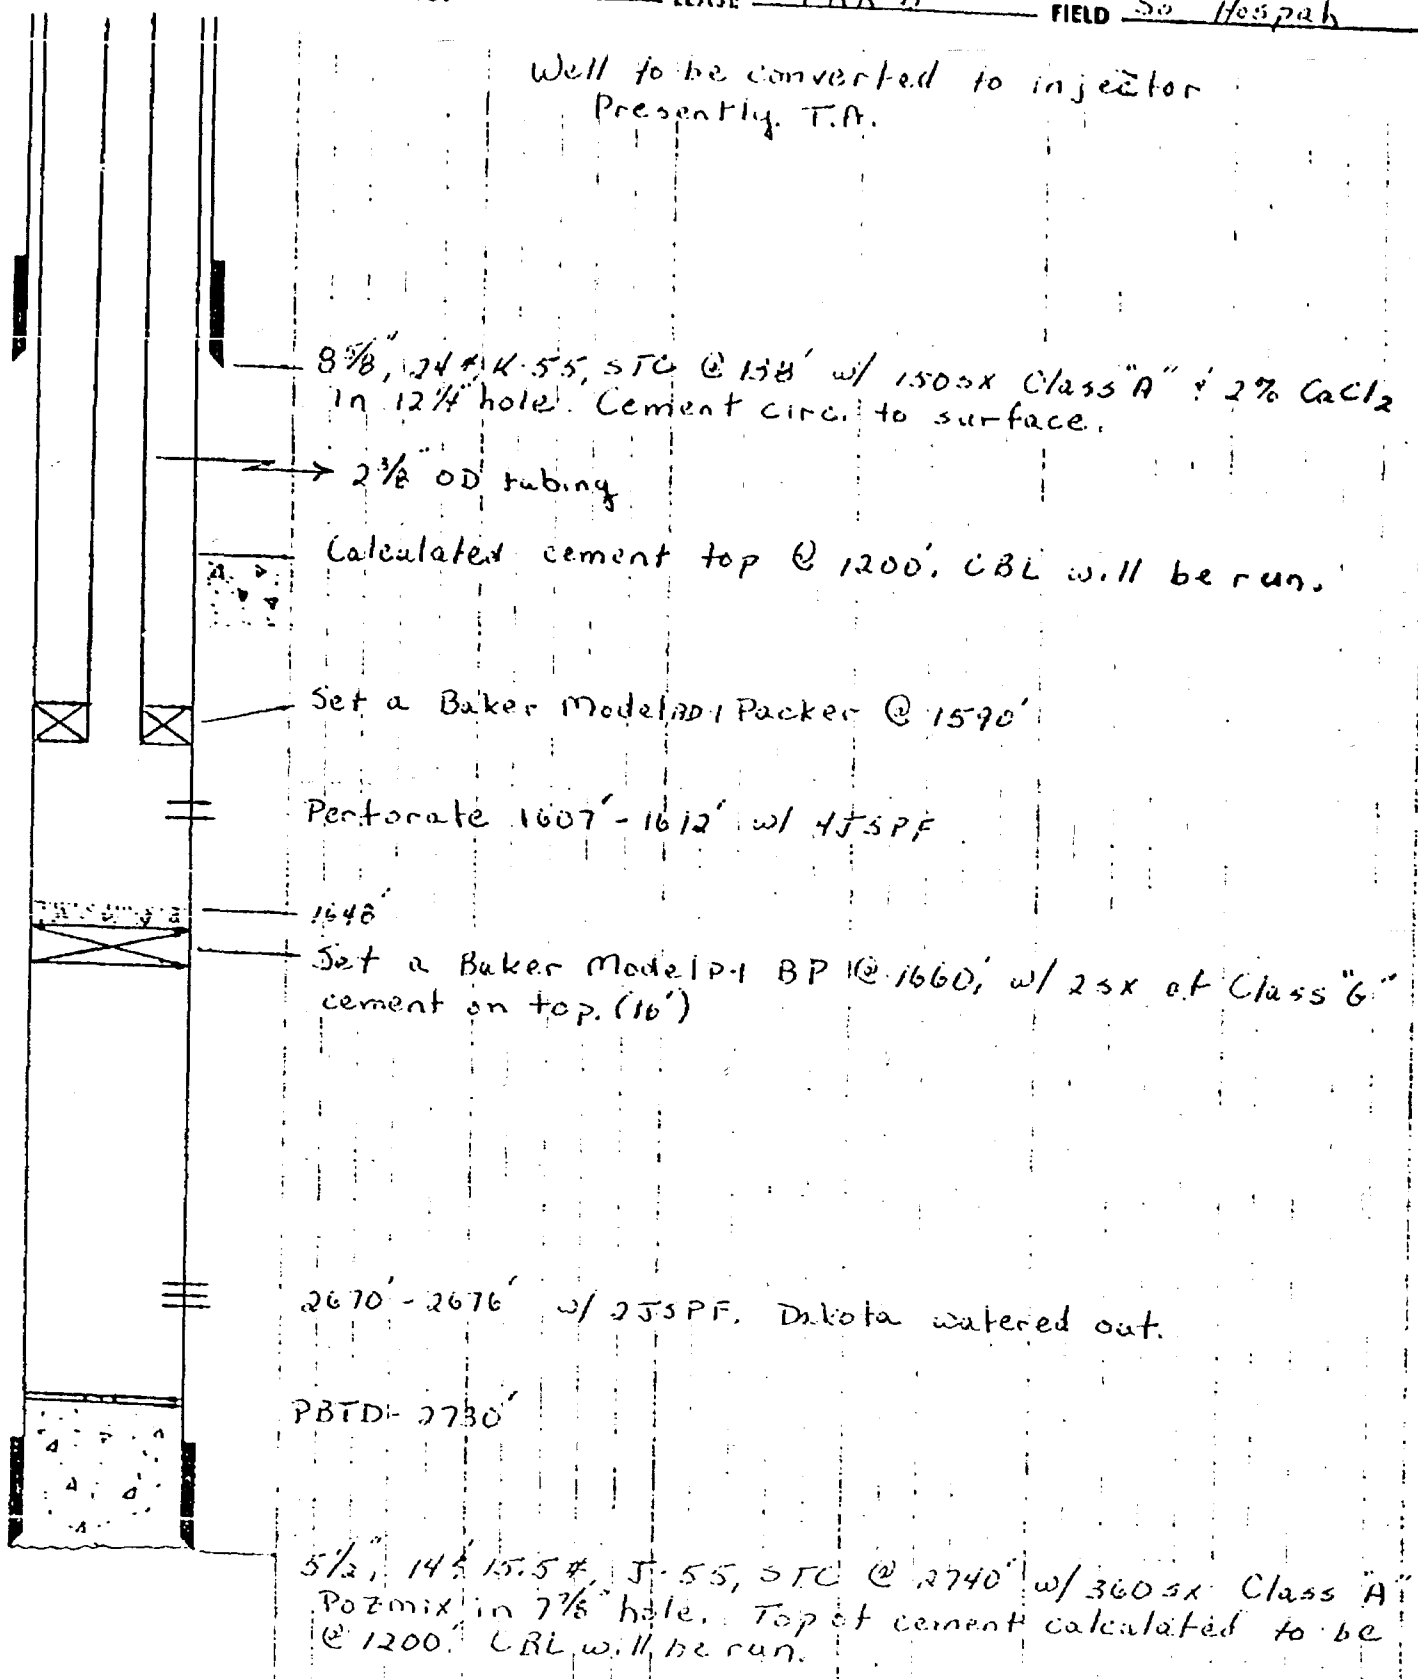 LEASE FIELD So Hospah
Well to be converted to injector
Presently T.A.
8 5/8", 24#, K-55, STC @ 138' w/ 150sx Class "A" & 2% CaCl2
in 12 1/4" hole. Cement circ. to surface.
2 3/8" OD tubing
Calculated cement top @ 1200'. CBL will be run.
Set a Baker Model AD-1 Packer @ 1590'
Perforate 1607' - 1612' w/ 4JSPF
1648'
Set a Baker Model P-1 BP @ 1660', w/ 2sx of Class "G"
cement on top. (16')
2670' - 2676' w/ 2JSPF. Dakota watered out.
PBTD - 2730'
5 1/2", 14 & 15.5#, J-55, STC @ 2740' w/ 360sx Class "A"
Pozmix in 7 7/8" hole. Top of cement calculated to be
@ 1200'. CBL will be run.